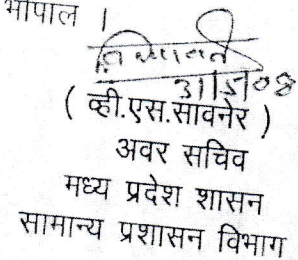 भोपाल ।
31/5/08
( व्ही.एस.सावनेर )
अवर सचिव
मध्य प्रदेश शासन
सामान्य प्रशासन विभाग